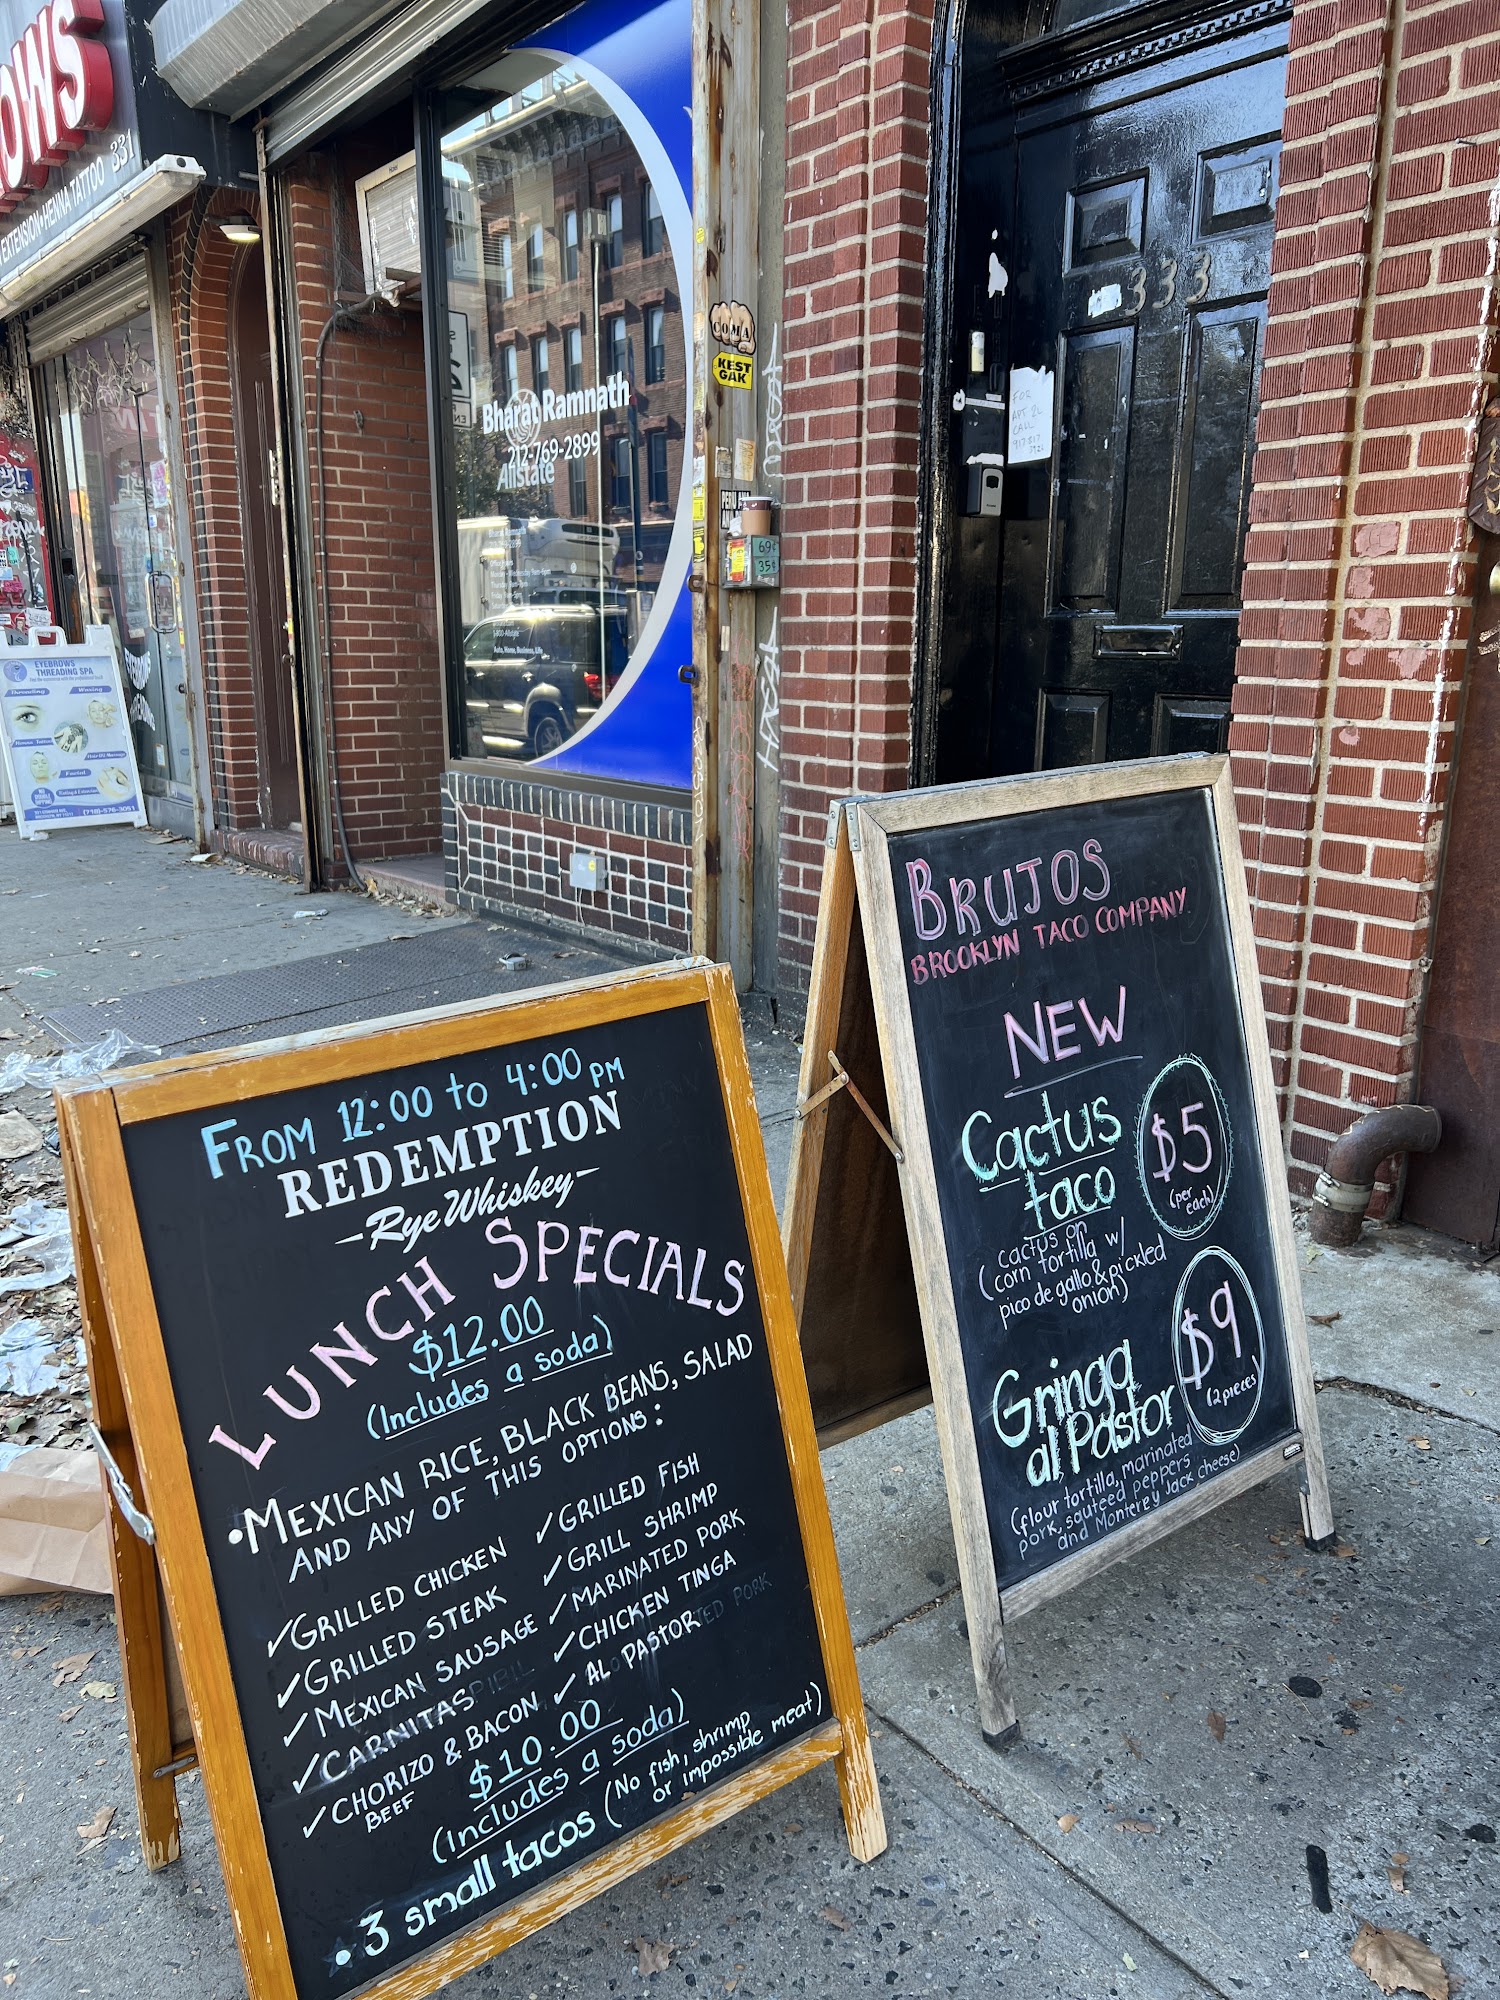 OWS
EXTENSION•HENNA TATTOO 331
EYEBROWS
THREADING SPA
Threading
Waxing
Henna Tattoo
Facial
(718)-576-3051
Bharat Ramnath
212-769-2899
Allstate
Bharat Ramnath
Auto, Home, Business, Life
COMA
KEST
GAK
69¢
35¢
333
FOR
APT 2L
CALL
BRUJOS
BROOKLYN TACO COMPANY
NEW
Cactus
taco
$5
(per
each)
(cactus on
corn tortilla w/
pico de gallo & pickled
onion)
Gringa
al Pastor
$9
(2 pieces)
(flour tortilla, marinated
pork, sauteed peppers
and Monterey Jack cheese)
FROM 12:00 to 4:00 PM
REDEMPTION
Rye Whiskey
LUNCH SPECIALS
$12.00
(Includes a soda)
•MEXICAN RICE, BLACK BEANS, SALAD
AND ANY OF THIS OPTIONS:
✓GRILLED CHICKEN
✓GRILLED STEAK
✓MEXICAN SAUSAGE
✓CARNITAS
✓CHORIZO & BACON
BEEF
✓GRILLED FISH
✓GRILL SHRIMP
✓MARINATED PORK
✓CHICKEN TINGA
✓AL PASTOR
$10.00
(Includes a soda)
•3 small tacos (No fish, shrimp
or impossible meat)